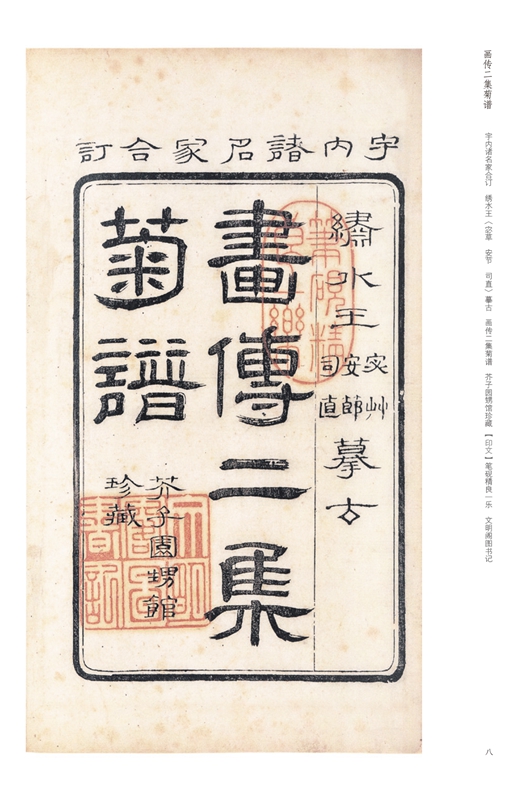 画传二集菊谱
宇内诸名家合订 绣水王（宓草 安节 司直）摹古 画传二集菊谱 芥子园甥馆珍藏 【印文】笔砚精良一乐 文明阁图书记
八
宇内諸名家合訂
繡水王
宓艸
安節
司直
摹古
畫傳二集
菊譜
芥子園甥館
珍藏